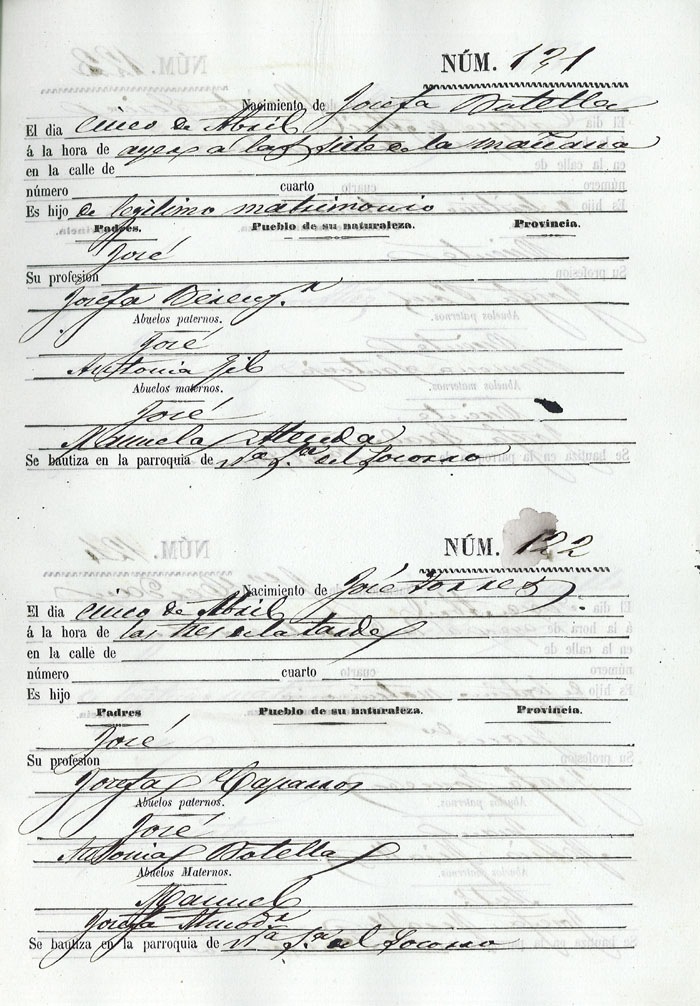 NÚM. 121
Nacimiento de Josefa Botella
El dia cinco de Abril
á la hora de ayer a las siete de la mañana
en la calle de
número cuarto
Es hijo de legitimo matrimonio
Padres. Pueblo de su naturaleza. Provincia.
José
Su profesion
Josefa
Abuelos paternos.
José
Antonia Gil
Abuelos maternos.
José
Manuela
Se bautiza en la parroquia de Nª Sª del Socorro
NÚM. 122
Nacimiento de José Torres
El dia cinco de Abril
á la hora de las tres de la tarde
en la calle de
número cuarto
Es hijo
Padres Pueblo de su naturaleza. Provincia.
José
Su profesion
Josefa Caparros
Abuelos paternos.
José
Antonia Botella
Abuelos Maternos.
Manuel
Josefa
Se bautiza en la parroquia de Nª Sª del Socorro